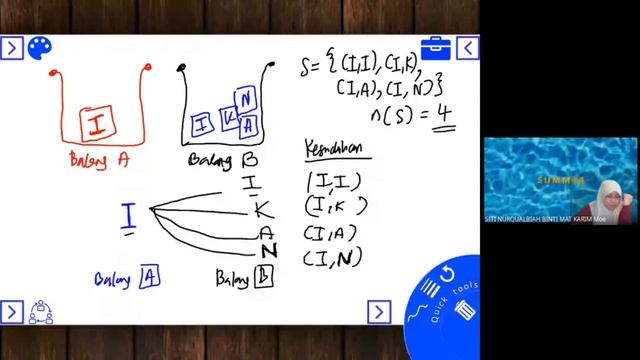 I
Balang A
I K N A
Balang B
S = { (I,I), (I,K),
(I,A), (I,N) }
n(S) = 4
Kesudahan
I
I
K
A
N
(I,I)
(I,K)
(I,A)
(I,N)
Balang A
Balang B
Quick tools
SUMMER
SITI NURQUALBIAH BINTI MAT KARIM Moe